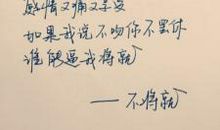 感情又痛又享受
如果我说不吻你不罢休
谁能逼我将就
——不将就